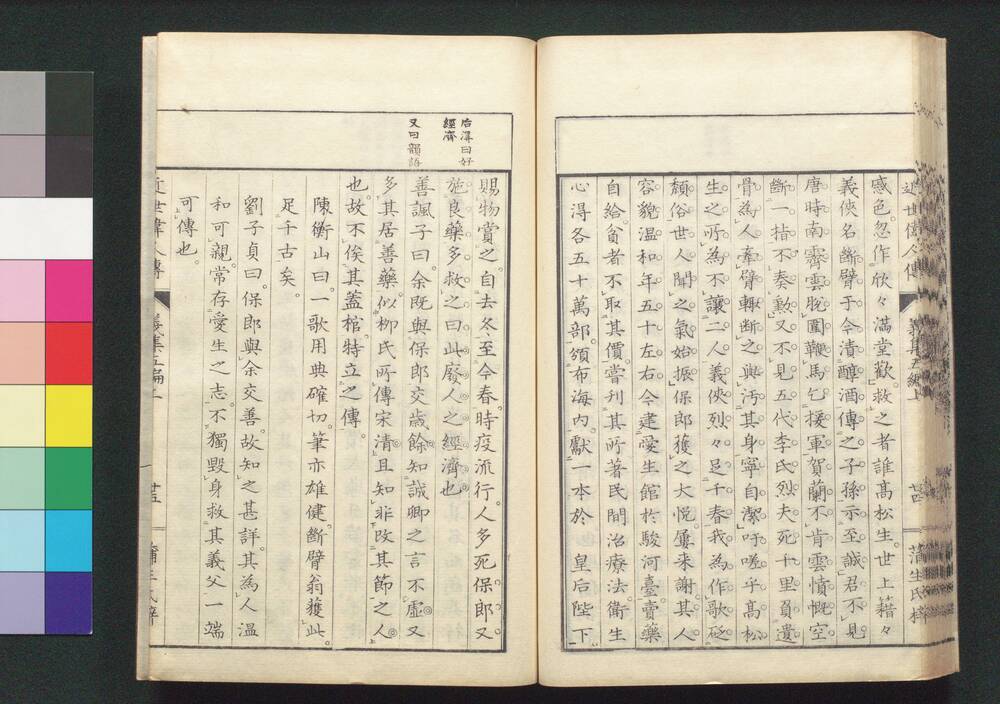 感色忽作欣々滿堂歡救之者誰髙松生世上籍々
義俠名斷臂于今漬醇酒傳之子孫示至誠君不見
唐時南霽雲脫圍鞭馬乞援軍賀蘭不肯雲憤慨空
斷一指不奏勲又不見五代李氏烈夫死千里負遺
骨為人牽臂輙斷之與汚其身寧自潔吁嗟乎髙松
生之所為不讓二人義俠烈々足千春我為作歌砭
頽俗世人聞之氣始振保郎獲之大悅屢来謝其人
容貌温和年五十左右今建愛生館於駿河臺賣藥
自給貧者不取其價嘗刋其所著民間治療法衛生
心得各五十萬部頒布海内獻一本於 皇后陛下
近世偉人傳
義集五編上
蒲生氏梓
后潯曰好
經濟
又曰韻語
賜物賞之自去冬至今春時疫流行人多死保郎又
施良藥多救之曰此廢人之經濟也
善諷子曰余既與保郎交歳餘知誠卿之言不虚又
多其居善藥似柳氏所傳宋清且知非改其節之人
也故不俟其蓋棺特立之傳
陳衡山曰一歌用典確切筆亦雄健斷臂翁獲此
足千古矣
劉子貞曰保郎與余交善故知之甚詳其為人温
和可親常存愛生之志不獨毀身救其義父一端
可傳也
近世偉人傳
義集五編上